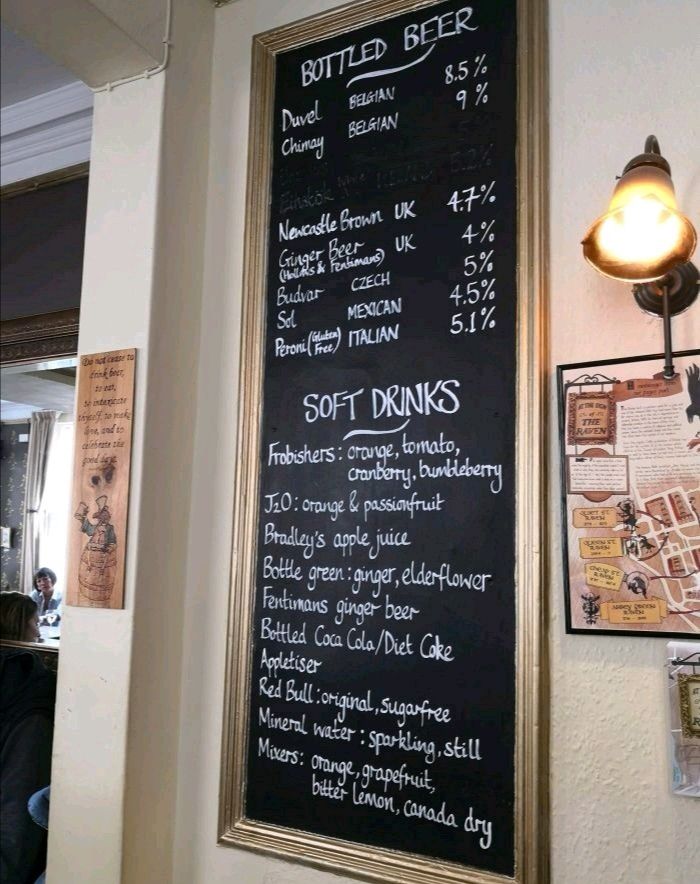 BOTTLED BEER
Duvel BELGIAN 8.5%
Chimay BELGIAN 9%
Einstök White 5.2%
Newcastle Brown UK 4.7%
Ginger Beer UK 4%
(Hollows & Fentimans)
Budvar CZECH 5%
Sol MEXICAN 4.5%
Peroni (Gluten Free) ITALIAN 5.1%
SOFT DRINKS
Frobishers: orange, tomato,
cranberry, bumbleberry
J2O: orange & passionfruit
Bradley's apple juice
Bottle green: ginger, elderflower
Fentimans ginger beer
Bottled Coca Cola/Diet Coke
Appletiser
Red Bull: original, sugarfree
Mineral water: sparkling, still
Mixers: orange, grapefruit,
bitter lemon, canada dry
Do not cease to
drink beer,
to eat,
to intoxicate
thyself, to make
love, and to
celebrate the
good days.
AT THE SIGN
OF
THE
RAVEN
QUIET ST.
RAVEN
QUEEN ST.
RAVEN
CHEAP ST.
RAVEN
ABBEY GREEN
RAVEN